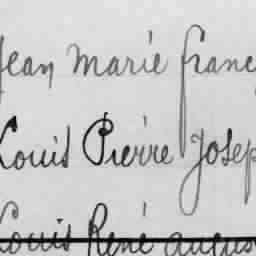 Jean Marie franç
Louis Pierre Josep
Louis René augus